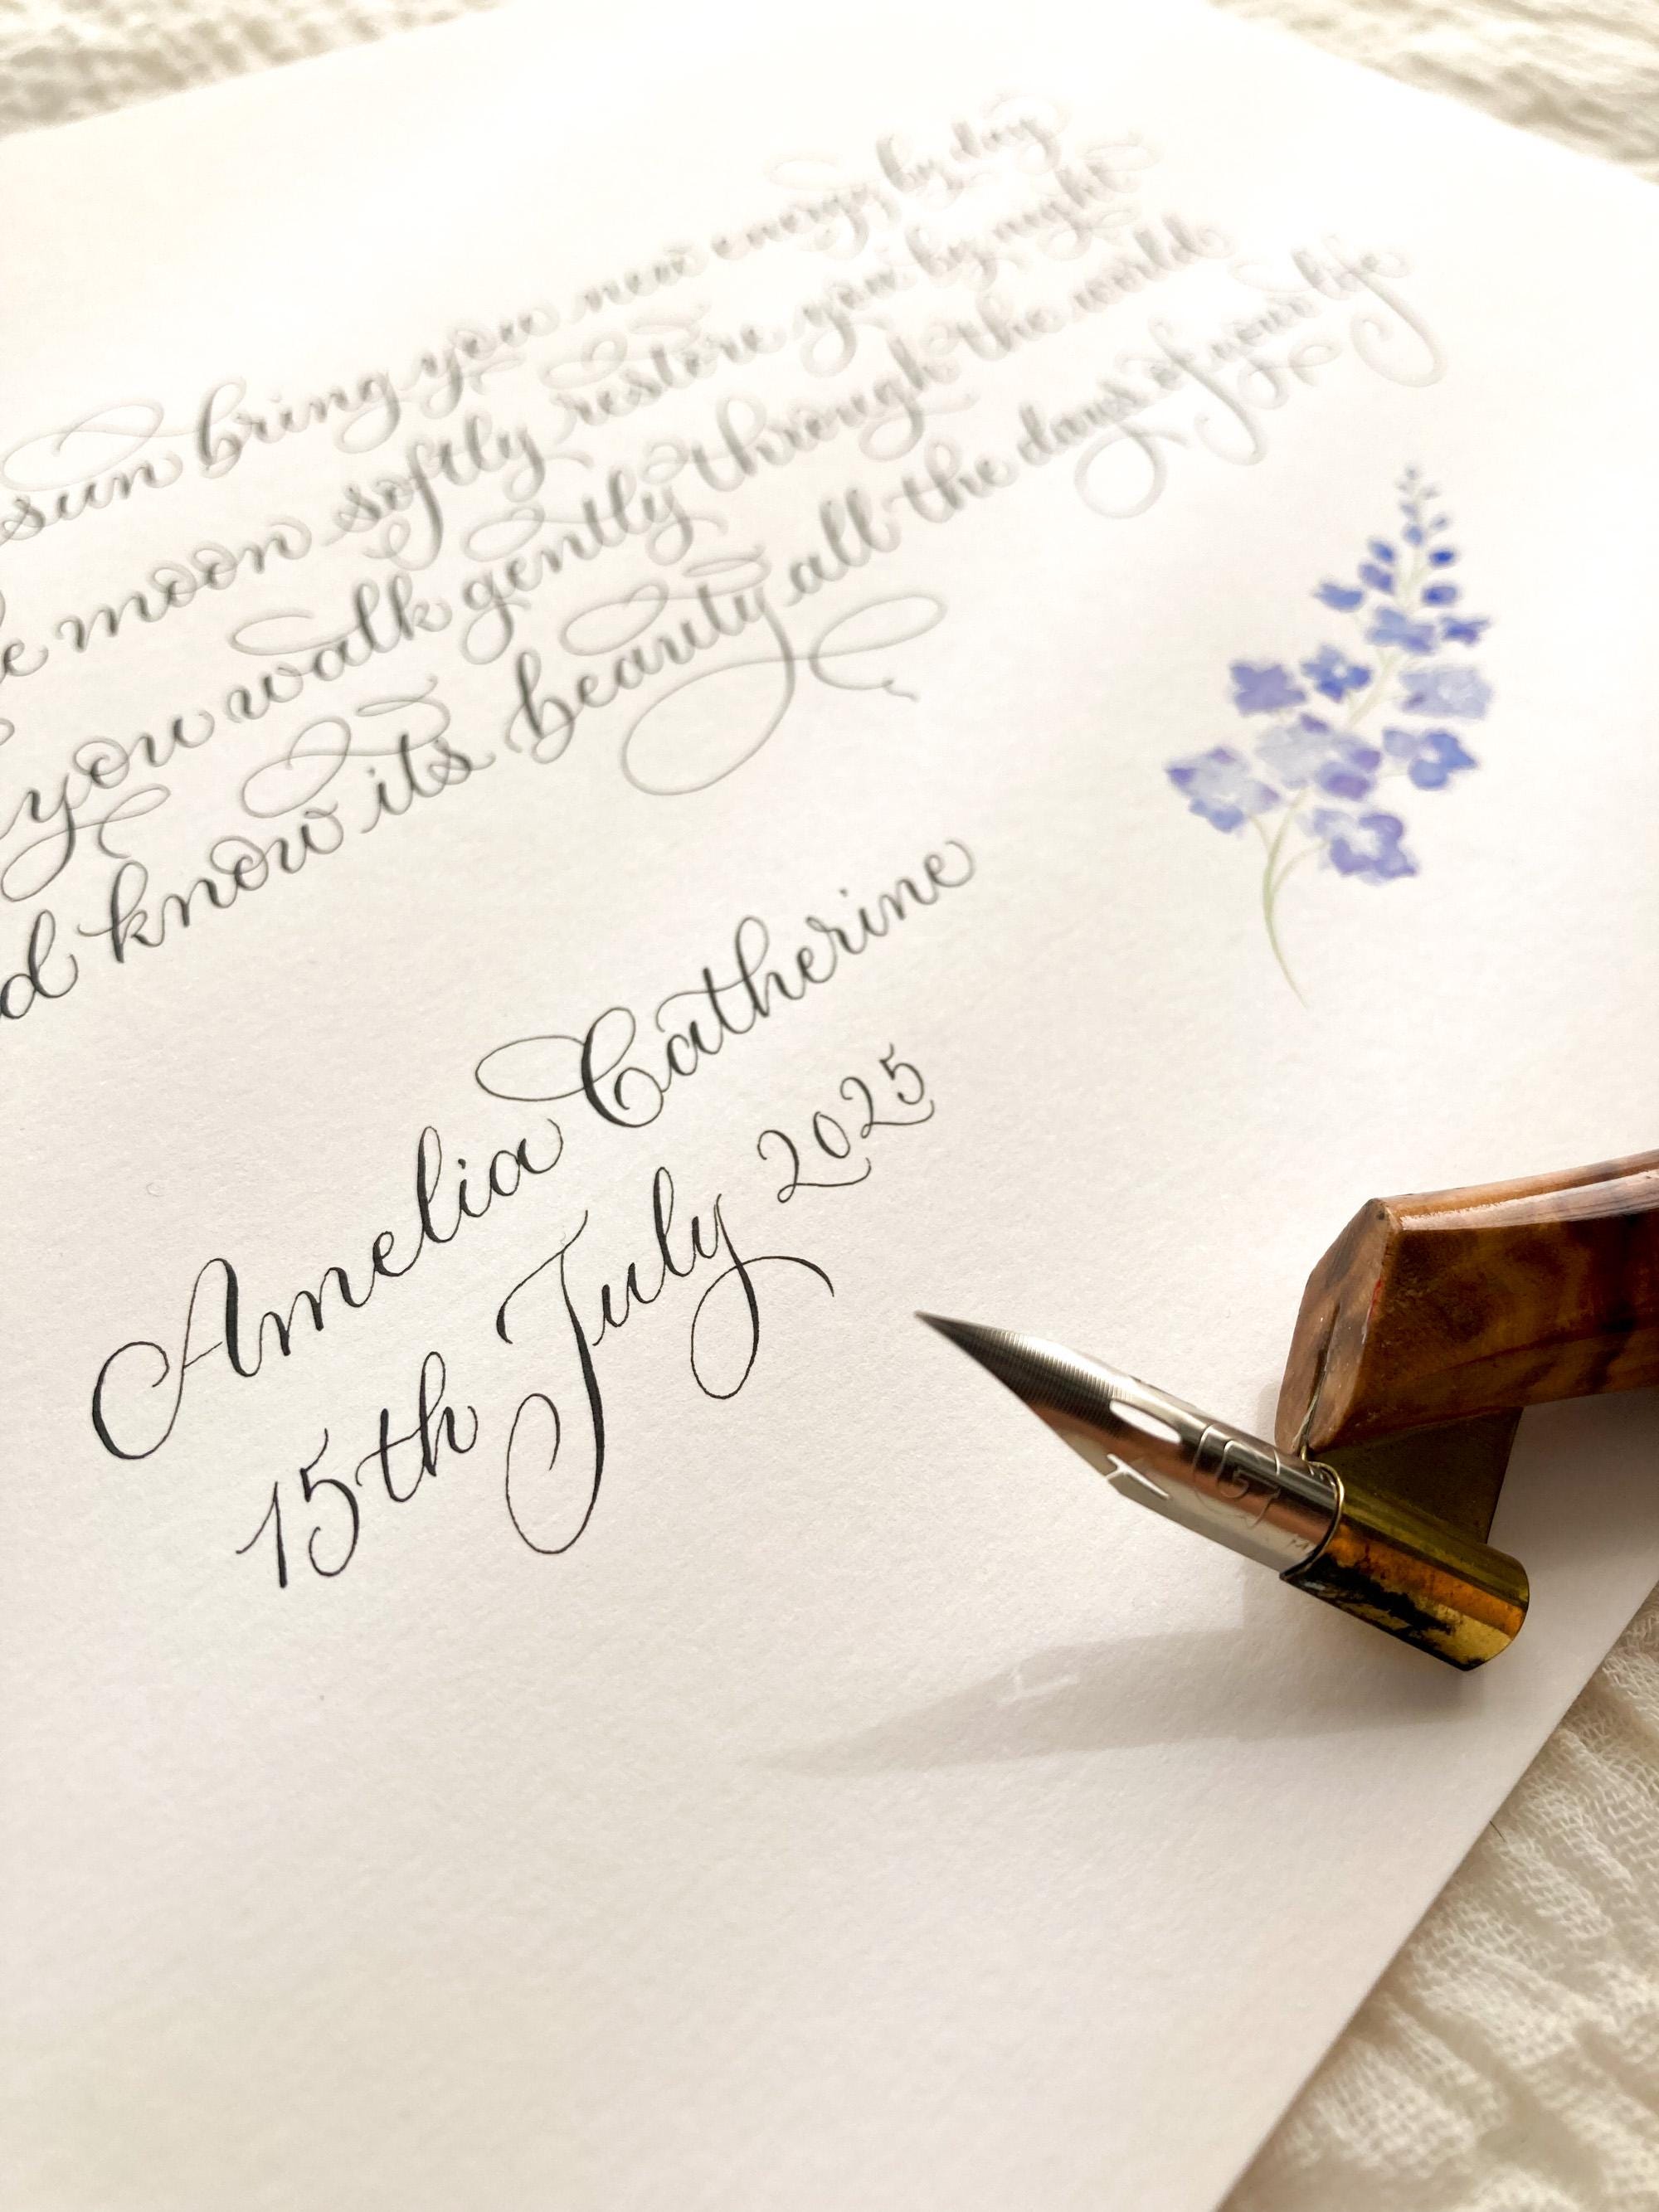 sun bring you new energy by day
e moon softly restore you by night
you walk gently through the world
d know its beauty all the days of your life
Amelia Catherine
15th July 2025
G